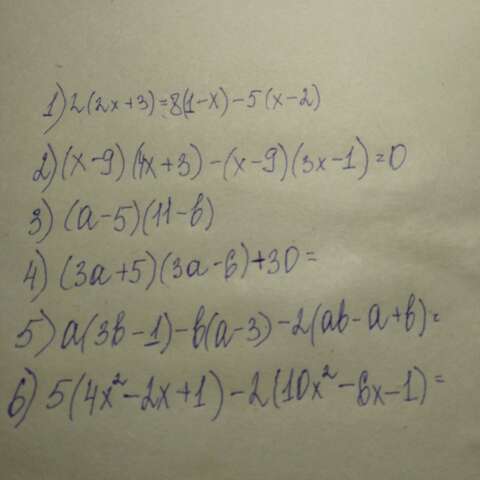 1) 2(2x+3)=8(1-x)-5(x-2)
2) (x-9)(4x+3)-(x-9)(3x-1)=0
3) (a-5)(11-b)
4) (3a+5)(3a-6)+30=
5) a(3b-1)-b(a-3)-2(ab-a+b)=
6) 5(4x²-2x+1)-2(10x²-6x-1)=